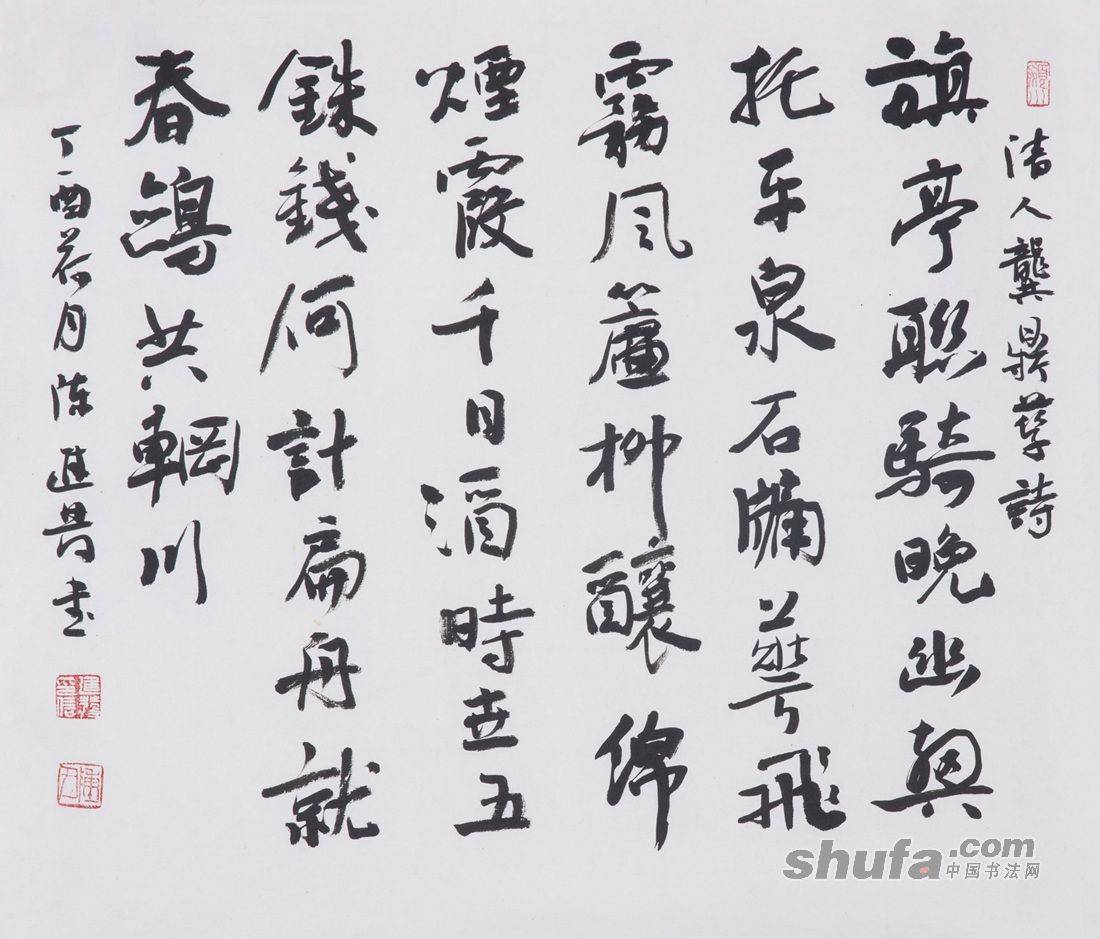 清人龔鼎孳詩
旗亭聯騎晚幽興
托平泉石牖華飛
霧風簾柳釀綿
煙霞千日酒時世五
銖錢何計扁舟就
春鷗共輞川
丁酉荷月陳進昌書
shufa.com
中国书法网